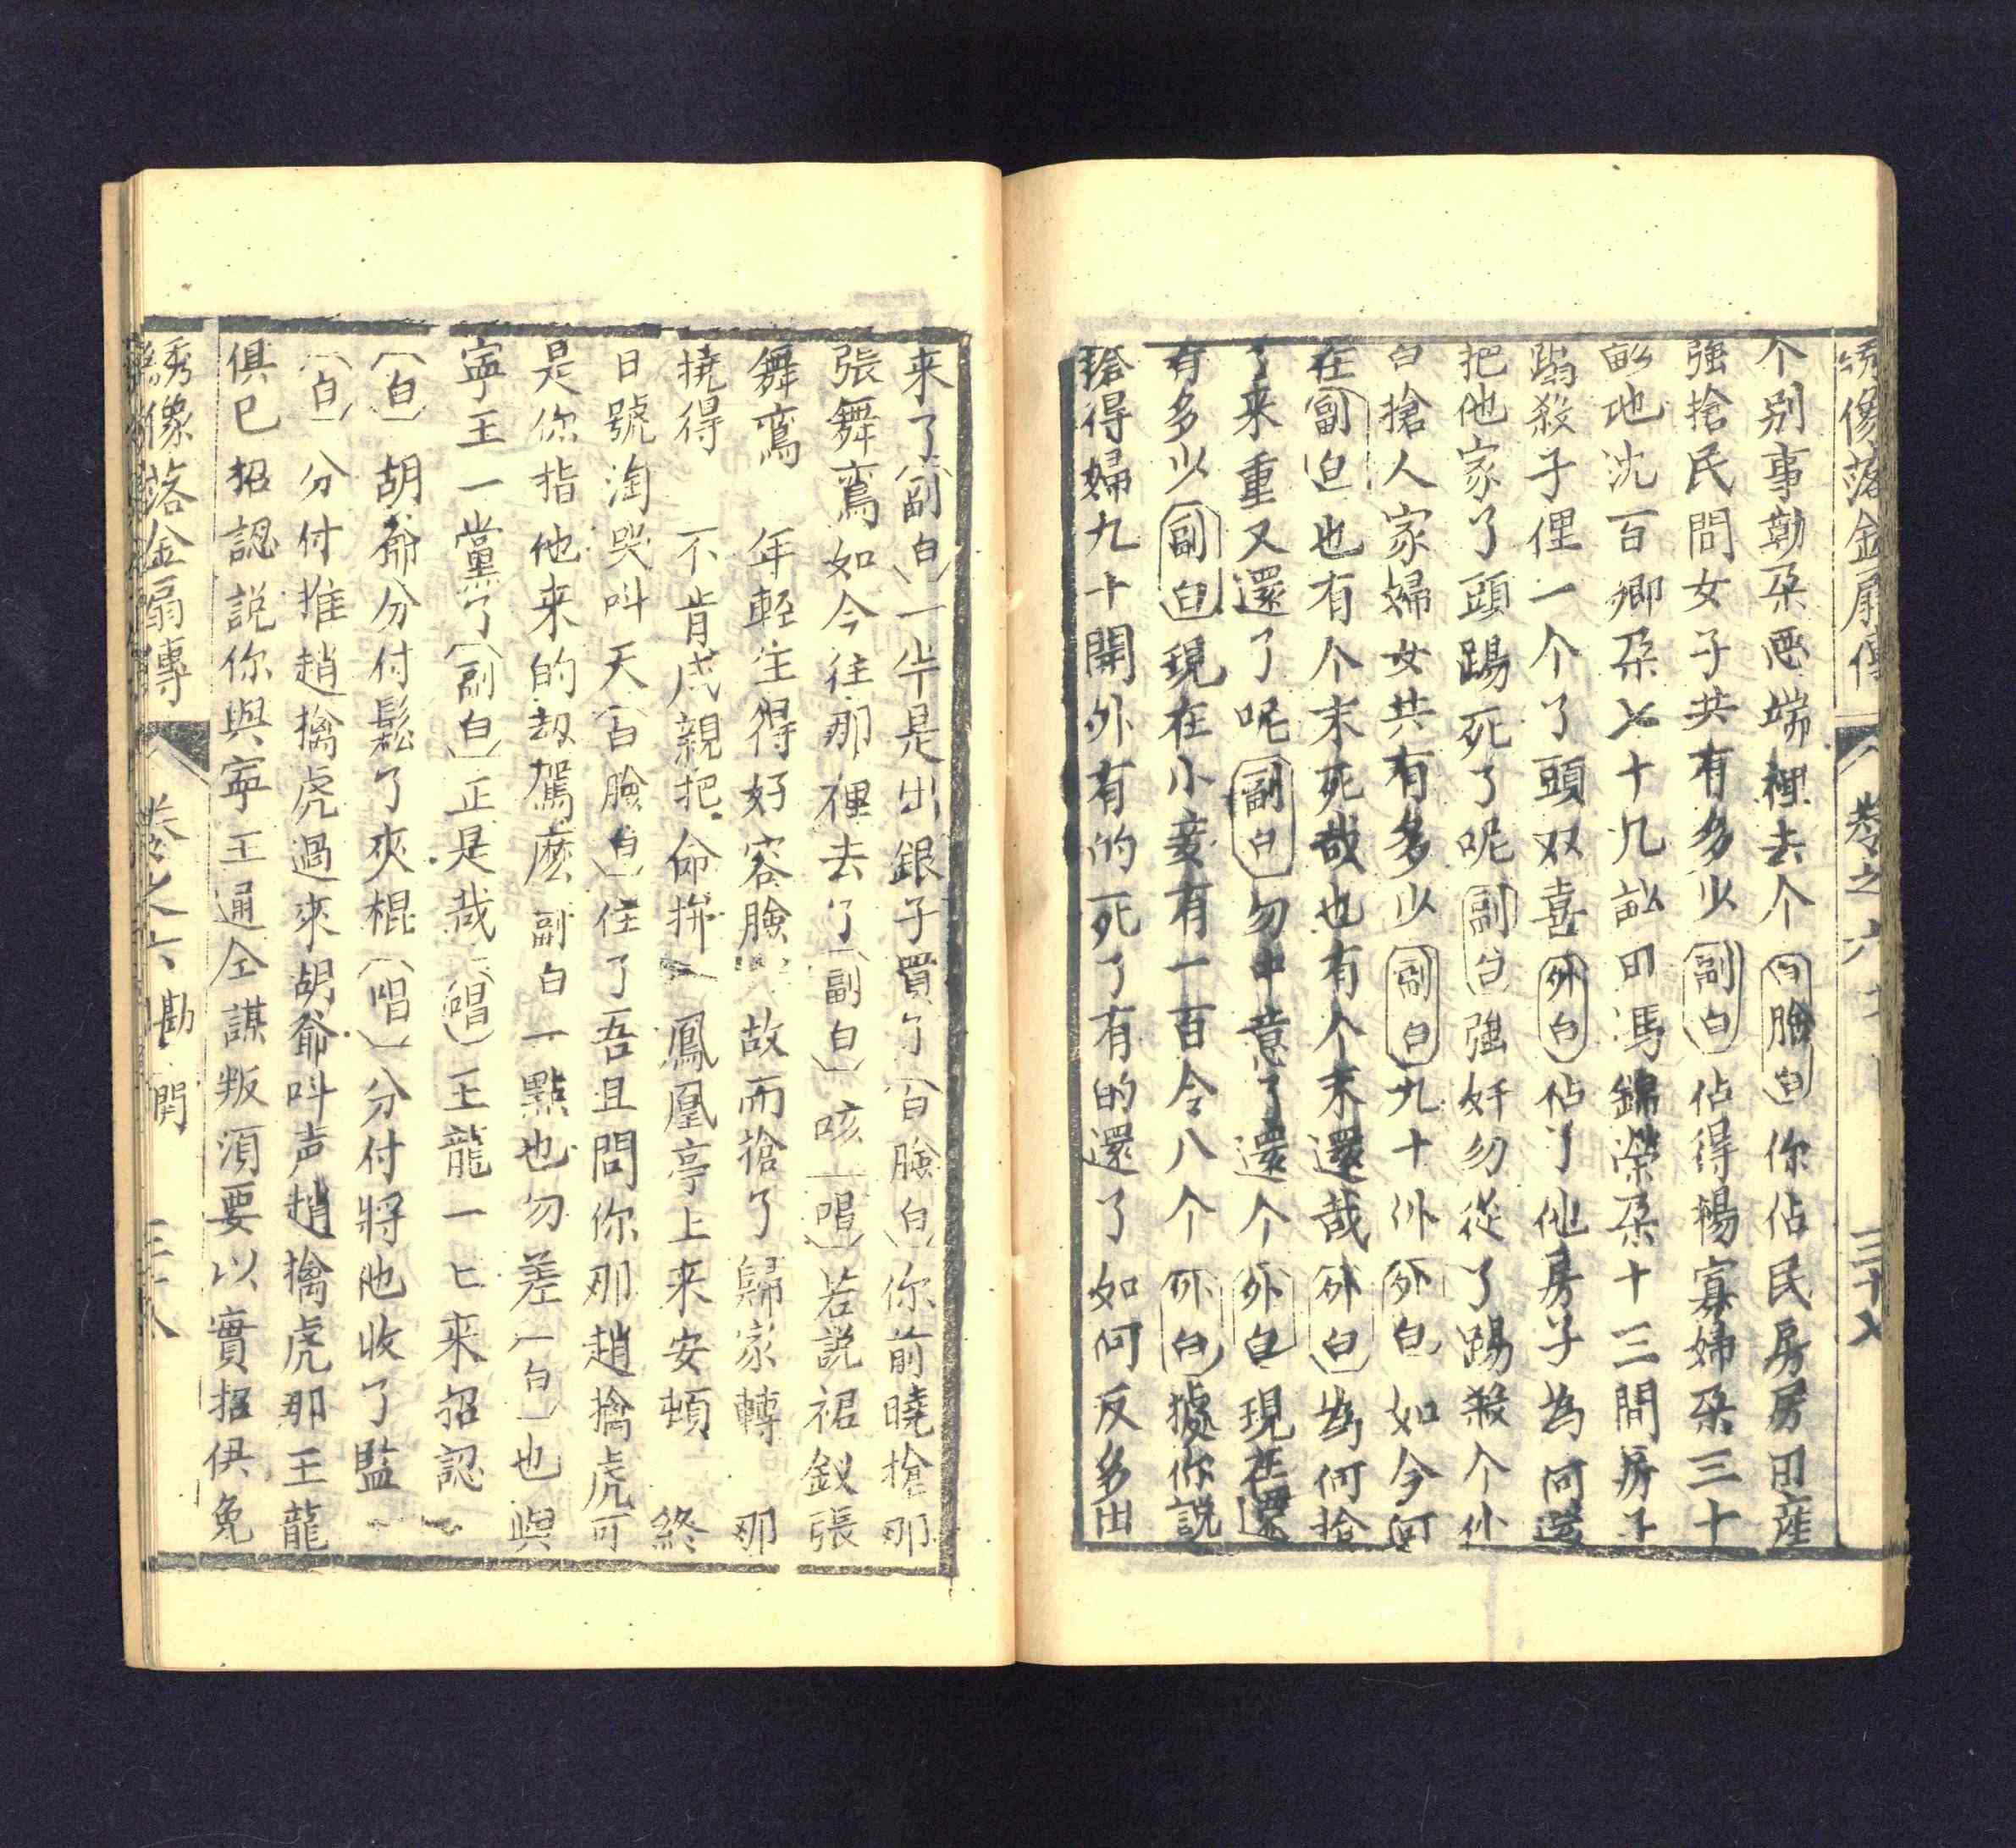 綉像落金扇傳 卷之六 三十七
个别事勅朶惡端裡去个白臉白你佔民房房田産
強搶民間女子共有多少副白佔得楊寡婦朶三十
畝地沈百卿朶七十九畝田馮錦榮朶十三間房子
蹋殺子俚一个了頭双喜外白佔了他房子為何
把他家了頭踢死了呢副白強奸勿從了踢殺个外
白搶人家婦女共有多少副白九十外外白如今何
在副白也有个末死哉也有个末還哉外白為何搶
了来重又還了呢副白勿中意了還个外白現在還
有多少副白現在小妾有一百令八个外白據你説
搶得婦九十開外有的死了有的還了如何反多出
来了副白一半是出銀子買了白臉白你前曉搶那
張舞鸞如今往那裡去了副白咳唱若説裙釵張
舞鸞 年輕生得好容臉 故而搶了歸家轉 那
撓得 不肯成親把命拚 鳳凰亭上来安頓 終
日號淘哭叫天白臉白住了吾且問你那趙擒虎可
是你指他来的刼駕麽副白一點也勿差白也與
寧王一黨了副白正是哉唱王龍一匕来招認
白胡爺分付鬆了夾棍唱分付將他收了監
白分付推趙擒虎過來胡爺呌声趙擒虎那王龍
俱已招認説你與寧王通仝謀叛須要以實招供免
綉像落金扇傳 卷之六 勘問 三十八